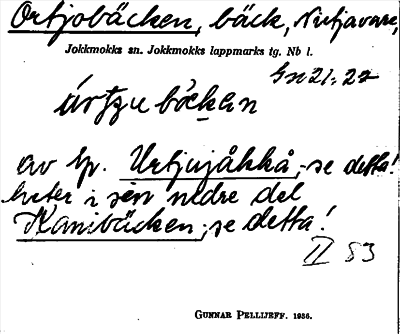 Ortjobäcken, bäck, Nutjavare,
Jokkmokks sn. Jokkmokks lappmarks tg. Nb l.
Gn 21:22
úrtzu bäcken
av lp. Urtjujåkkå, se detta!
heter i sin nedre del
Kanibäcken, se detta!
II 53
GUNNAR PELLIJEFF. 1936.